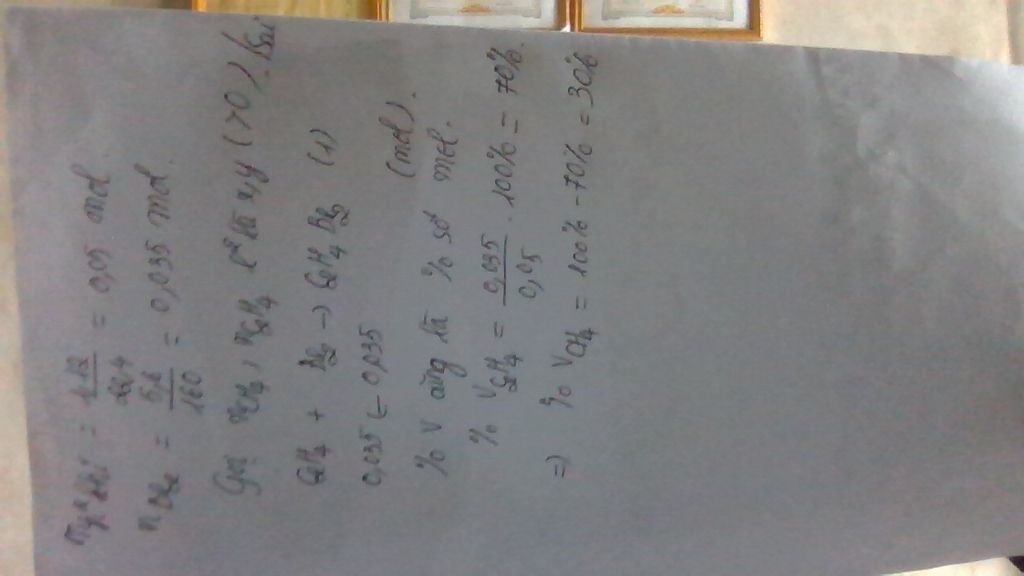 n hỗn hợp khí = 1,12 / 22,4 = 0,05 mol
nBr2 = 5,6 / 160 = 0,035 mol.
Gọi nCH4, nC2H4 lần lượt là x, y (>0)
C2H4 + Br2 → C2H4Br2 (1)
0,035 ← 0,035 (mol).
% V cũng là % số mol.
% VC2H4 = 0,035 / 0,05 . 100% = 70%.
=> % VCH4 = 100% - 70% = 30%